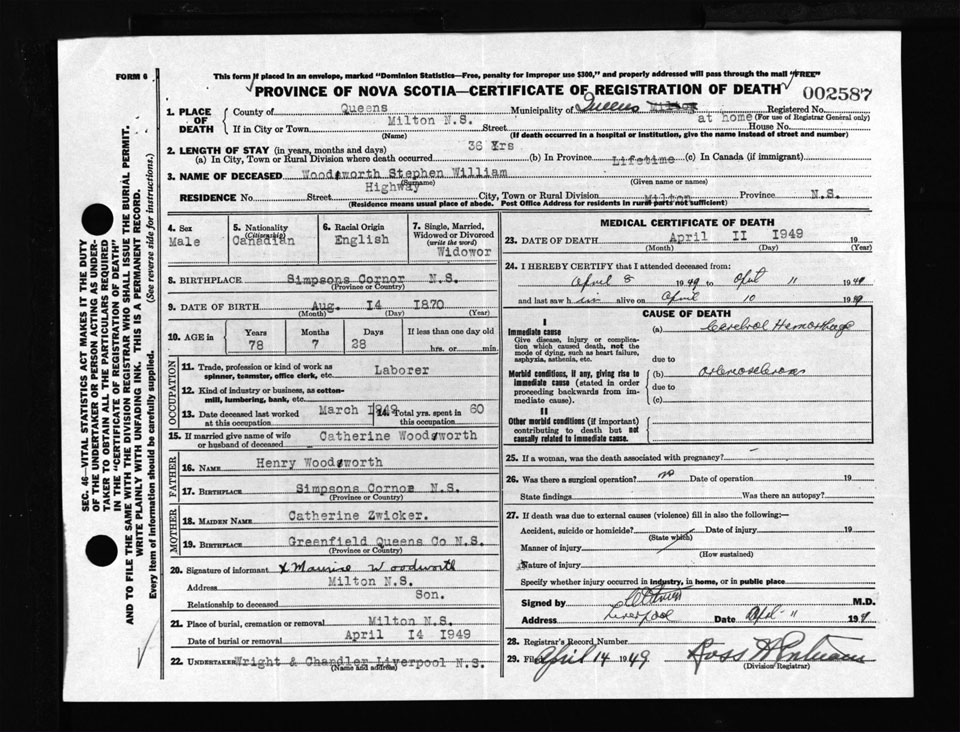 FORM 6
This form if placed in an envelope, marked "Dominion Statistics—Free, penalty for improper use $300," and properly addressed will pass through the mail "FREE"
PROVINCE OF NOVA SCOTIA—CERTIFICATE OF REGISTRATION OF DEATH
002587
1. PLACE OF DEATH
County of Queens Municipality of Queens Milton Registered No.
(For use of Registrar General only)
If in City or Town Milton N.S. Street at home House No.
(Name) (If death occurred in a hospital or institution, give the name instead of street and number)
2. LENGTH OF STAY (in years, months and days)
(a) In City, Town or Rural Division where death occurred 36 Yrs (b) In Province Lifetime (c) In Canada (if immigrant)
3. NAME OF DECEASED Woodsworth Stephen William
(Surname) (Given name or names)
RESIDENCE No. Street Highway City, Town or Rural Division Milton Province N.S.
(Residence means usual place of abode. Post Office Address for residents in rural parts not sufficient)
4. Sex Male
5. Nationality (Citizenship) Canadian
6. Racial Origin English
7. Single, Married, Widowed or Divorced (write the word) Widowor
8. BIRTHPLACE Simpsons Cornor N.S.
(Province or Country)
9. DATE OF BIRTH Aug. I4 I870
(Month) (Day) (Year)
10. AGE in Years Months Days If less than one day old
78 7 28 hrs. or min.
OCCUPATION
11. Trade, profession or kind of work as spinner, teamster, office clerk, etc. Laborer
12. Kind of industry or business, as cotton-mill, lumbering, bank, etc.
13. Date deceased last worked at this occupation March I949
14. Total yrs. spent in this occupation 60
15. If married give name of wife or husband of deceased Catherine Woodsworth
FATHER
16. NAME Henry Woodsworth
17. BIRTHPLACE Simpsons Cornor N.S.
(Province or Country)
MOTHER
18. MAIDEN NAME Catherine Zwicker.
19. BIRTHPLACE Greenfield Queens Co N.S.
(Province or Country)
20. Signature of informant x Maurice Woodworth
Address Milton N.S.
Relationship to deceased Son.
21. Place of burial, cremation or removal Milton N.S.
Date of burial or removal April I4 I949
22. UNDERTAKER Wright & Chandler Liverpool N.S.
(Name and address)
MEDICAL CERTIFICATE OF DEATH
23. DATE OF DEATH April II I949 19
(Month) (Day) (Year)
24. I HEREBY CERTIFY that I attended deceased from:
April 8 1949 to April 11 1949
and last saw him alive on April 10 1949
CAUSE OF DEATH
I
Immediate cause
Give disease, injury or complication which caused death, not the mode of dying, such as heart failure, asphyxia, asthenia, etc.
(a) Cerebral Hemorrhage
due to
Morbid conditions, if any, giving rise to immediate cause (stated in order proceeding backwards from immediate cause).
(b) arteriosclerosis
due to
(c)
II
Other morbid conditions (if important) contributing to death but not causally related to immediate cause.
25. If a woman, was the death associated with pregnancy? –
26. Was there a surgical operation? no Date of operation 19
State findings Was there an autopsy?
27. If death was due to external causes (violence) fill in also the following:—
Accident, suicide or homicide? Date of injury 19
(State which)
Manner of injury
(How sustained)
Nature of injury
Specify whether injury occurred in industry, in home, or in public place
Signed by M.D.
Address Liverpool Date April 11 194
28. Registrar's Record Number
29. Filed April 14 1949 Ross
(Division Registrar)
SEC. 46—VITAL STATISTICS ACT MAKES IT THE DUTY
OF THE UNDERTAKER OR PERSON ACTING AS UNDER-
TAKER TO OBTAIN ALL THE PARTICULARS REQUIRED
IN THE "CERTIFICATE OF REGISTRATION OF DEATH"
AND TO FILE THE SAME WITH THE DIVISION REGISTRAR WHO SHALL ISSUE THE BURIAL PERMIT.
WRITE PLAINLY WITH UNFADING INK. THIS IS A PERMANENT RECORD.
Every item of information should be carefully supplied. (See reverse side for instructions.)